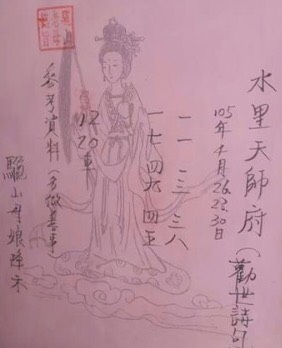 水里天師府(勸世詩句)
105年4月26.28.30日
二一 二三 三八
一七 四六 四五
12 20車
參考資料(多做善事)
驪山母娘降示